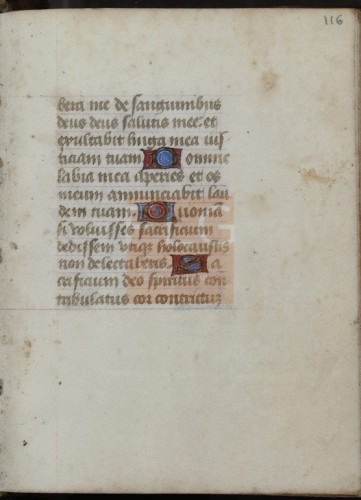 116
bera me de sanguinibus
deus deus salutis mee. et
exultabit lingua mea iust
ticiam tuam Domine
labia mea aperies et os
meum annunciabit lau
dem tuam. Quoniā
si voluisses sacrificium
dedissem vtiqꝫ holocaustis
non delectaberis. Sa
crificium deo spiritus con
tribulatus cor contrictuꝫ